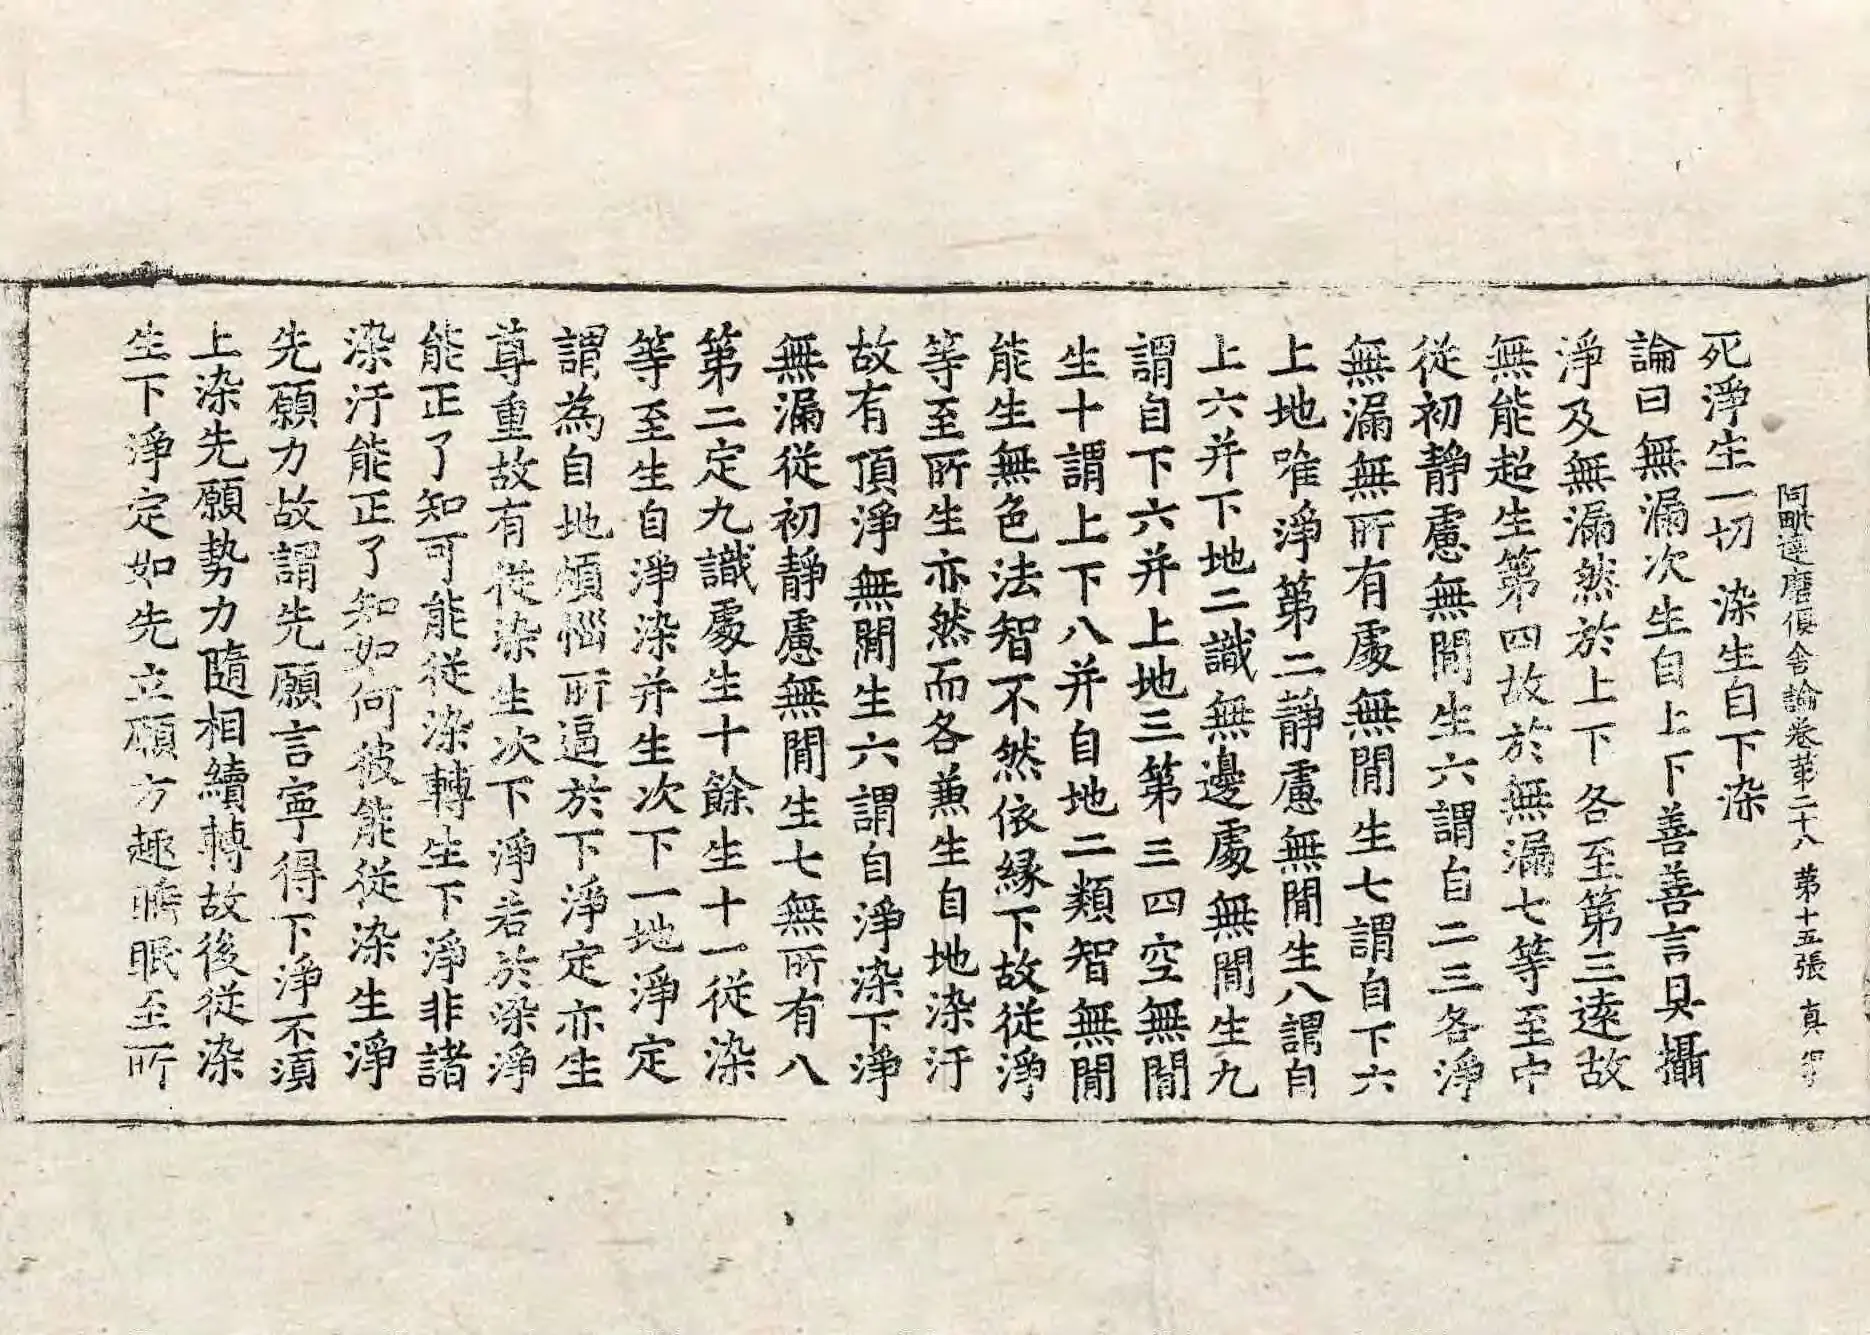 阿毗達磨俱舍論卷第二十八 第十五張 真
死淨生一切 染生自下染
論曰無漏次生自上下善善言具攝
淨及無漏然於上下各至第三遠故
無能超生第四故於無漏七等至中
從初靜慮無間生六謂自二三各淨
無漏無所有處無間生七謂自下六
上地唯淨第二靜慮無間生八謂自
上六并下地二識無邊處無間生九
謂自下六并上地三第三四空無間
生十謂上下八并自地二類智無間
能生無色法智不然依緣下故從淨
等至所生亦然而各兼生自地染汙
故有頂淨無間生六謂自淨染下淨
無漏從初靜慮無間生七無所有八
第二定九識處生十餘生十一從染
等至生自淨染并生次下一地淨定
謂為自地煩惱所逼於下淨定亦生
尊重故有從染生次下淨若於染淨
能正了知可能從染轉生下淨非諸
染汙能正了知如何彼能從染生淨
先願力故謂先願言寧得下淨不須
上染先願勢力隨相續轉故後從染
生下淨定如先立願方趣睡眠至所